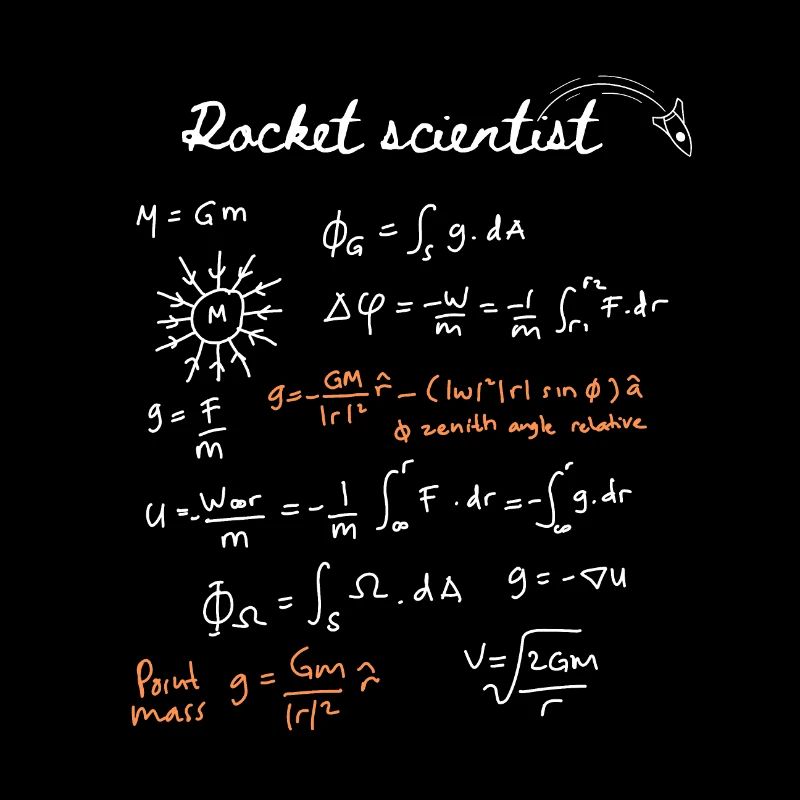 Rocket scientist
M = Gm
ϕG = ∫S g. dA
M
Δφ = -W/m = -1/m ∫r1^r2 F.dr
g = F/m
g=-GM/|r|² r̂ - (|w|²|r| sin ϕ) â
ϕ zenith angle relative
U =-W∞r/m = -1/m ∫∞^r F . dr = -∫∞^r g.dr
ΦΩ = ∫S Ω. dA
g = -∇U
Point mass g = Gm/|r|² r̂
V=√2Gm/r